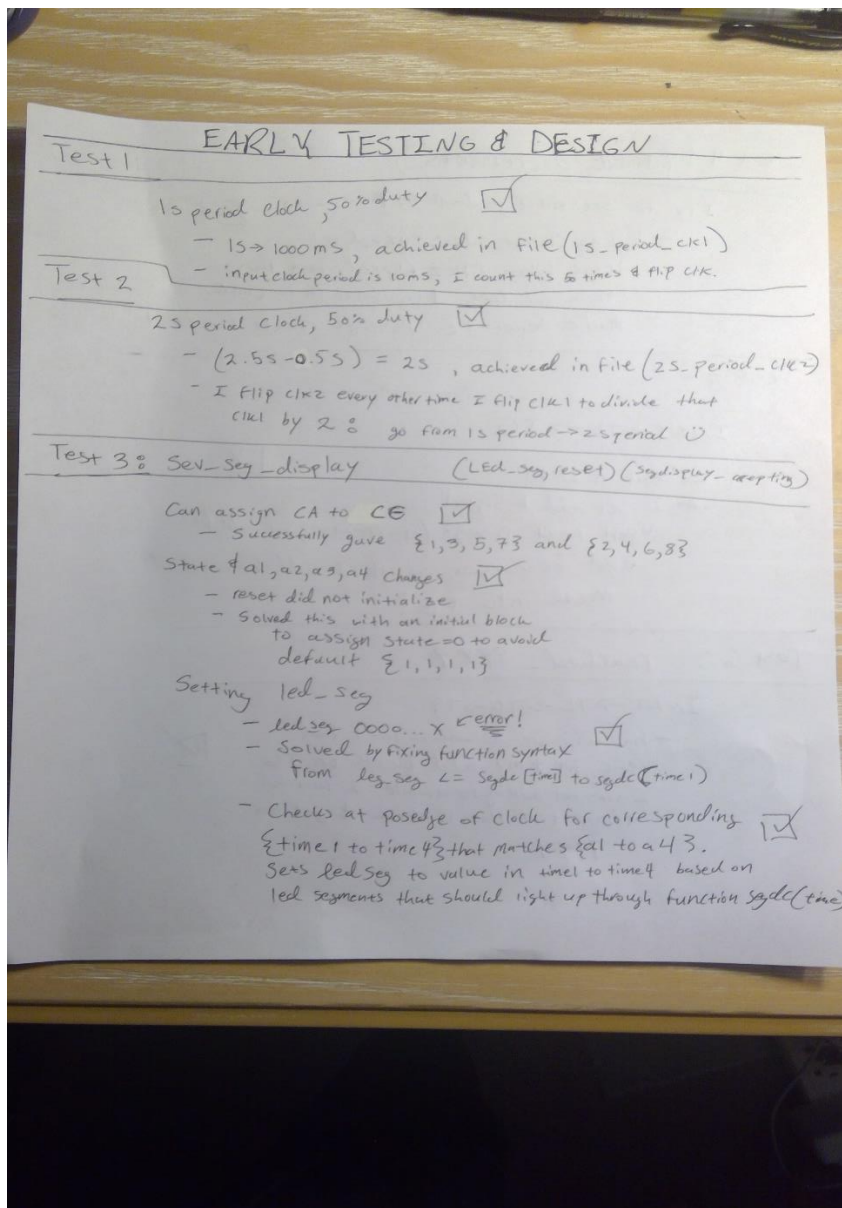 EARLY TESTING & DESIGN
Test 1
1s period clock, 50% duty
- 1s → 1000ms, achieved in file (1s_period_clk1)
- input clock period is 10ms, I count this 50 times & flip clk.
Test 2
2s period clock, 50% duty
- (2.5s-0.5s) = 2s , achieved in file (2s_period_clk2)
- I flip clk2 every other time I flip clk1 to divide that
clk1 by 2 : go from 1s period → 2s period
Test 3: Sev_seg_display (LEd_seg, reset) (segdisplay_
Can assign CA to
- Successfully gave {1,3,5,7} and {2,4,6,8}
State & a1, a2, a3, a4 changes
- reset did not initialize
- Solved this with an initial block
to assign state=0 to avoid
default {1,1,1,1}
Setting led_seg
- led seg 0000... X ← error!
- Solved by fixing function syntax
from leg_seg <= segdc[time1] to segdc(time1)
- Checks at posedge of clock for corresponding
{time1 to time4} that matches {a1 to a4}.
Sets led seg to value in time1 to time4 based on
led segments that should light up through function segdc(time)